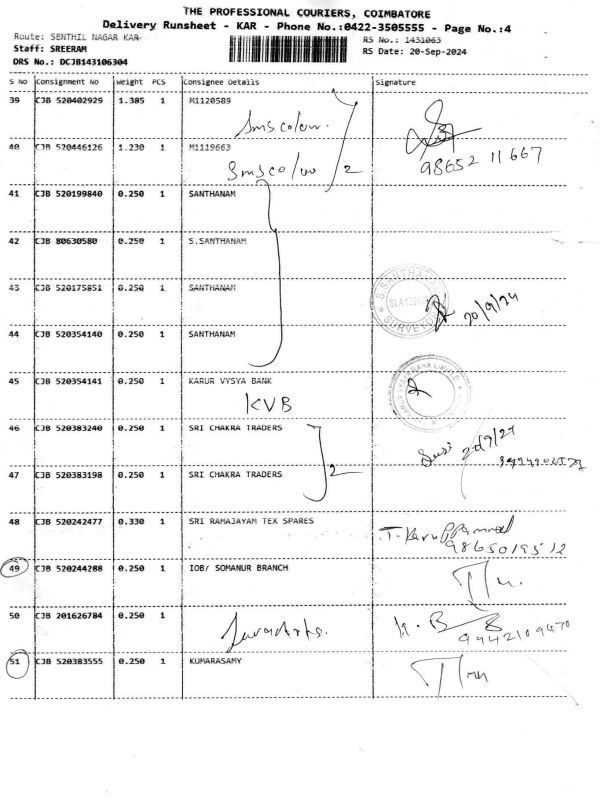 THE PROFESSIONAL COURIERS, COIMBATORE
Delivery Runsheet - KAR - Phone No.:0422-3505555 - Page No.:4
Route: SENTHIL NAGAR KAR
RS No.: 1431063
Staff: SREERAM
RS Date: 20-Sep-2024
DRS No.: DCJB143106304
S NO Consignment No Weight PCS Consignee Details Signature
39 CJB 520402929 1.385 1 M1120589
Smscolour
40 CJB 520446126 1.230 1 M1119663
Smscolour 2
98652 11667
41 CJB 520199840 0.250 1 SANTHANAM
42 CJB 80630580 0.250 1 S.SANTHANAM
43 CJB 520175851 0.250 1 SANTHANAM
S SANTHANAM
SURVEYOR
20/9/24
44 CJB 520354140 0.250 1 SANTHANAM
45 CJB 520354141 0.250 1 KARUR VYSYA BANK
KVB
46 CJB 520383240 0.250 1 SRI CHAKRA TRADERS
2
47 CJB 520383198 0.250 1 SRI CHAKRA TRADERS
48 CJB 520242477 0.330 1 SRI RAMAJAYAM TEX SPARES
9865019512
49 CJB 520244288 0.250 1 IOB/ SOMANUR BRANCH
50 CJB 201626784 0.250 1
9942109470
51 CJB 520383555 0.250 1 KUMARASAMY